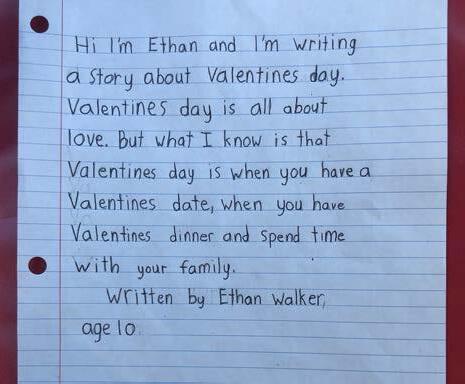 Hi I'm Ethan and I'm writing
a story about Valentines day.
Valentines day is all about
love. But what I know is that
Valentines day is when you have a
Valentines date, when you have
Valentines dinner and spend time
with your family.
Written by Ethan Walker,
age 10